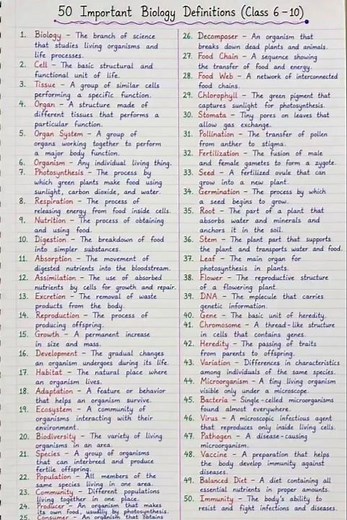 50 Important Biology Definitions (Class 6-10)
1. Biology – The branch of science
that studies living organisms and
life processes.
2. Cell – The basic structural and
functional unit of life.
3. Tissue – A group of similar cells
performing a specific function.
4. Organ – A structure made of
different tissues that performs a
particular function.
5. Organ System – A group of
organs working together to perform
a major body function.
6. Organism – Any individual living thing.
7. Photosynthesis – The process by
which green plants make food using
sunlight, carbon dioxide, and water.
8. Respiration – The process of
releasing energy from food inside cells.
9. Nutrition – The process of obtaining
and using food.
10. Digestion – The breakdown of food
into simpler substances.
11. Absorption – The movement of
digested nutrients into the bloodstream.
12. Assimilation – The use of absorbed
nutrients by cells for growth and repair.
13. Excretion – The removal of waste
products from the body.
14. Reproduction – The process of
producing offspring.
15. Growth – A permanent increase
in size and mass.
16. Development – The gradual changes
an organism undergoes during its life.
17. Habitat – The natural place where
an organism lives.
18. Adaptation – A feature or behavior
that helps an organism survive.
19. Ecosystem – A community of
organisms interacting with their
environment.
20. Biodiversity – The variety of living
organisms in an area.
21. Species – A group of organisms
that can interbreed and produce
fertile offspring.
22. Population – All members of the
same species living in one area.
23. Community – Different populations
living together in one place.
24. Producer – An organism that makes
its own food, usually by photosynthesis.
25. Consumer – An organism that obtains
26. Decomposer – An organism that
breaks down dead plants and animals.
27. Food Chain – A sequence showing
the transfer of food and energy.
28. Food Web – A network of interconnected
food chains.
29. Chlorophyll – The green pigment that
captures sunlight for photosynthesis.
30. Stomata – Tiny pores on leaves that
allow gas exchange.
31. Pollination – The transfer of pollen
from anther to stigma.
32. Fertilization – The fusion of male
and female gametes to form a zygote.
33. Seed – A fertilized ovule that can
grow into a new plant.
34. Germination – The process by which
a seed begins to grow.
35. Root – The part of a plant that
absorbs water and minerals and
anchors it in the soil.
36. Stem – The plant part that supports
the plant and transports water and food.
37. Leaf – The main organ for
photosynthesis in plants.
38. Flower – The reproductive structure
of a flowering plant.
39. DNA – The molecule that carries
genetic information.
40. Gene – The basic unit of heredity.
41. Chromosome – A thread-like structure
in cells that contains genes.
42. Heredity – The passing of traits
from parents to offspring.
43. Variation – Differences in characteristics
among individuals of the same species.
44. Microorganism – A tiny living organism
visible only under a microscope.
45. Bacteria – Single-celled microorganisms
found almost everywhere.
46. Virus – A microscopic infectious agent
that reproduces only inside living cells.
47. Pathogen – A disease-causing
microorganism.
48. Vaccine – A preparation that helps
the body develop immunity against
diseases.
49. Balanced Diet – A diet containing all
essential nutrients in proper amounts.
50. Immunity – The body's ability to
resist and fight infections and diseases.